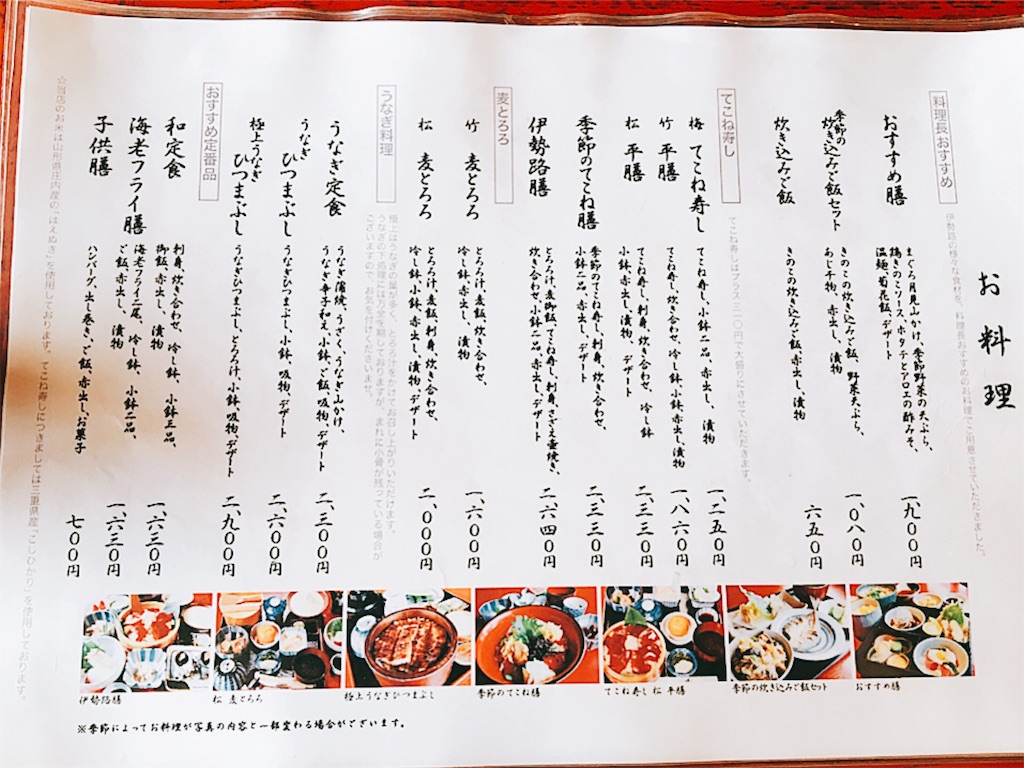 お料理
料理長おすすめ
伊勢路の様々な食材を、料理長おすすめのお料理でご用意させていただきました。
おすすめ膳
まぐろ月見山かけ、季節野菜の天ぷら、
鶏きのこソース、ホタテとアロエの酢みそ、
温麺、菊花飯、デザート
一、九〇〇円
季節の
炊き込みご飯セット
きのこの炊き込みご飯、野菜天ぷら、
あじ干物、赤出し、漬物
一、〇八〇円
炊き込みご飯
きのこの炊き込みご飯、赤出し、漬物
六五〇円
てこね寿し
てこね寿しはプラス二一〇円で大盛りにさせていただきます。
梅 てこね寿し
てこね寿し、小鉢二品、赤出し、漬物
一、二五〇円
竹 平膳
てこね寿し、炊き合わせ、冷し鉢、小鉢、赤出し、漬物
一、八六〇円
松 平膳
てこね寿し、刺身、炊き合わせ、冷し鉢
小鉢、赤出し、漬物、デザート
二、三三〇円
季節のてこね膳
季節のてこね寿し、刺身、炊き合わせ、
小鉢二品、赤出し、デザート
二、三三〇円
伊勢路膳
とろろ汁、麦御飯、てこね寿し、刺身、さざえ壷焼き、
炊き合わせ、小鉢二品、赤出し、デザート
二、六四〇円
麦とろろ
竹 麦とろろ
とろろ汁、麦飯、炊き合わせ、
冷し鉢、赤出し、漬物
一、六〇〇円
松 麦とろろ
とろろ汁、麦飯、刺身、炊き合わせ、
冷し鉢、小鉢、赤出し、漬物、デザート
二、〇〇〇円
うなぎ料理
極上はうなぎの量が多く、とろろ汁をかけてお召し上がりいただけます。
うなぎの下処理には万全を期しておりますが、まれに小骨が残っている場合が
ございますので、お気を付けくださいませ。
うなぎ定食
うなぎ蒲焼、うざく、うなぎ山かけ、
うなぎ辛子和え、小鉢、ご飯、吸物、デザート
二、三〇〇円
うなぎ
ひつまぶし
うなぎひつまぶし、小鉢、吸物、デザート
二、六〇〇円
極上うなぎ
ひつまぶし
うなぎひつまぶし、とろろ汁、小鉢、吸物、デザート
二、九〇〇円
おすすめ定番品
和定食
刺身、炊き合わせ、冷し鉢、小鉢三品、
御飯、赤出し、漬物
一、六三〇円
海老フライ膳
海老フライ二尾、冷し鉢、小鉢二品、
ご飯、赤出し、漬物
一、六三〇円
子供膳
ハンバーグ、出し巻き、ご飯、赤出し、お菓子
七〇〇円
☆当店のお米は山形県庄内産の「はえぬき」を使用しております。てこね寿しにつきましては三重県産「こしひかり」を使用しております。
伊勢路膳
松 麦とろろ
極上うなぎひつまぶし
季節のてこね膳
てこね寿し 松 平膳
季節の炊き込みご飯セット
おすすめ膳
※季節によってお料理が写真の内容と一部変わる場合がございます。